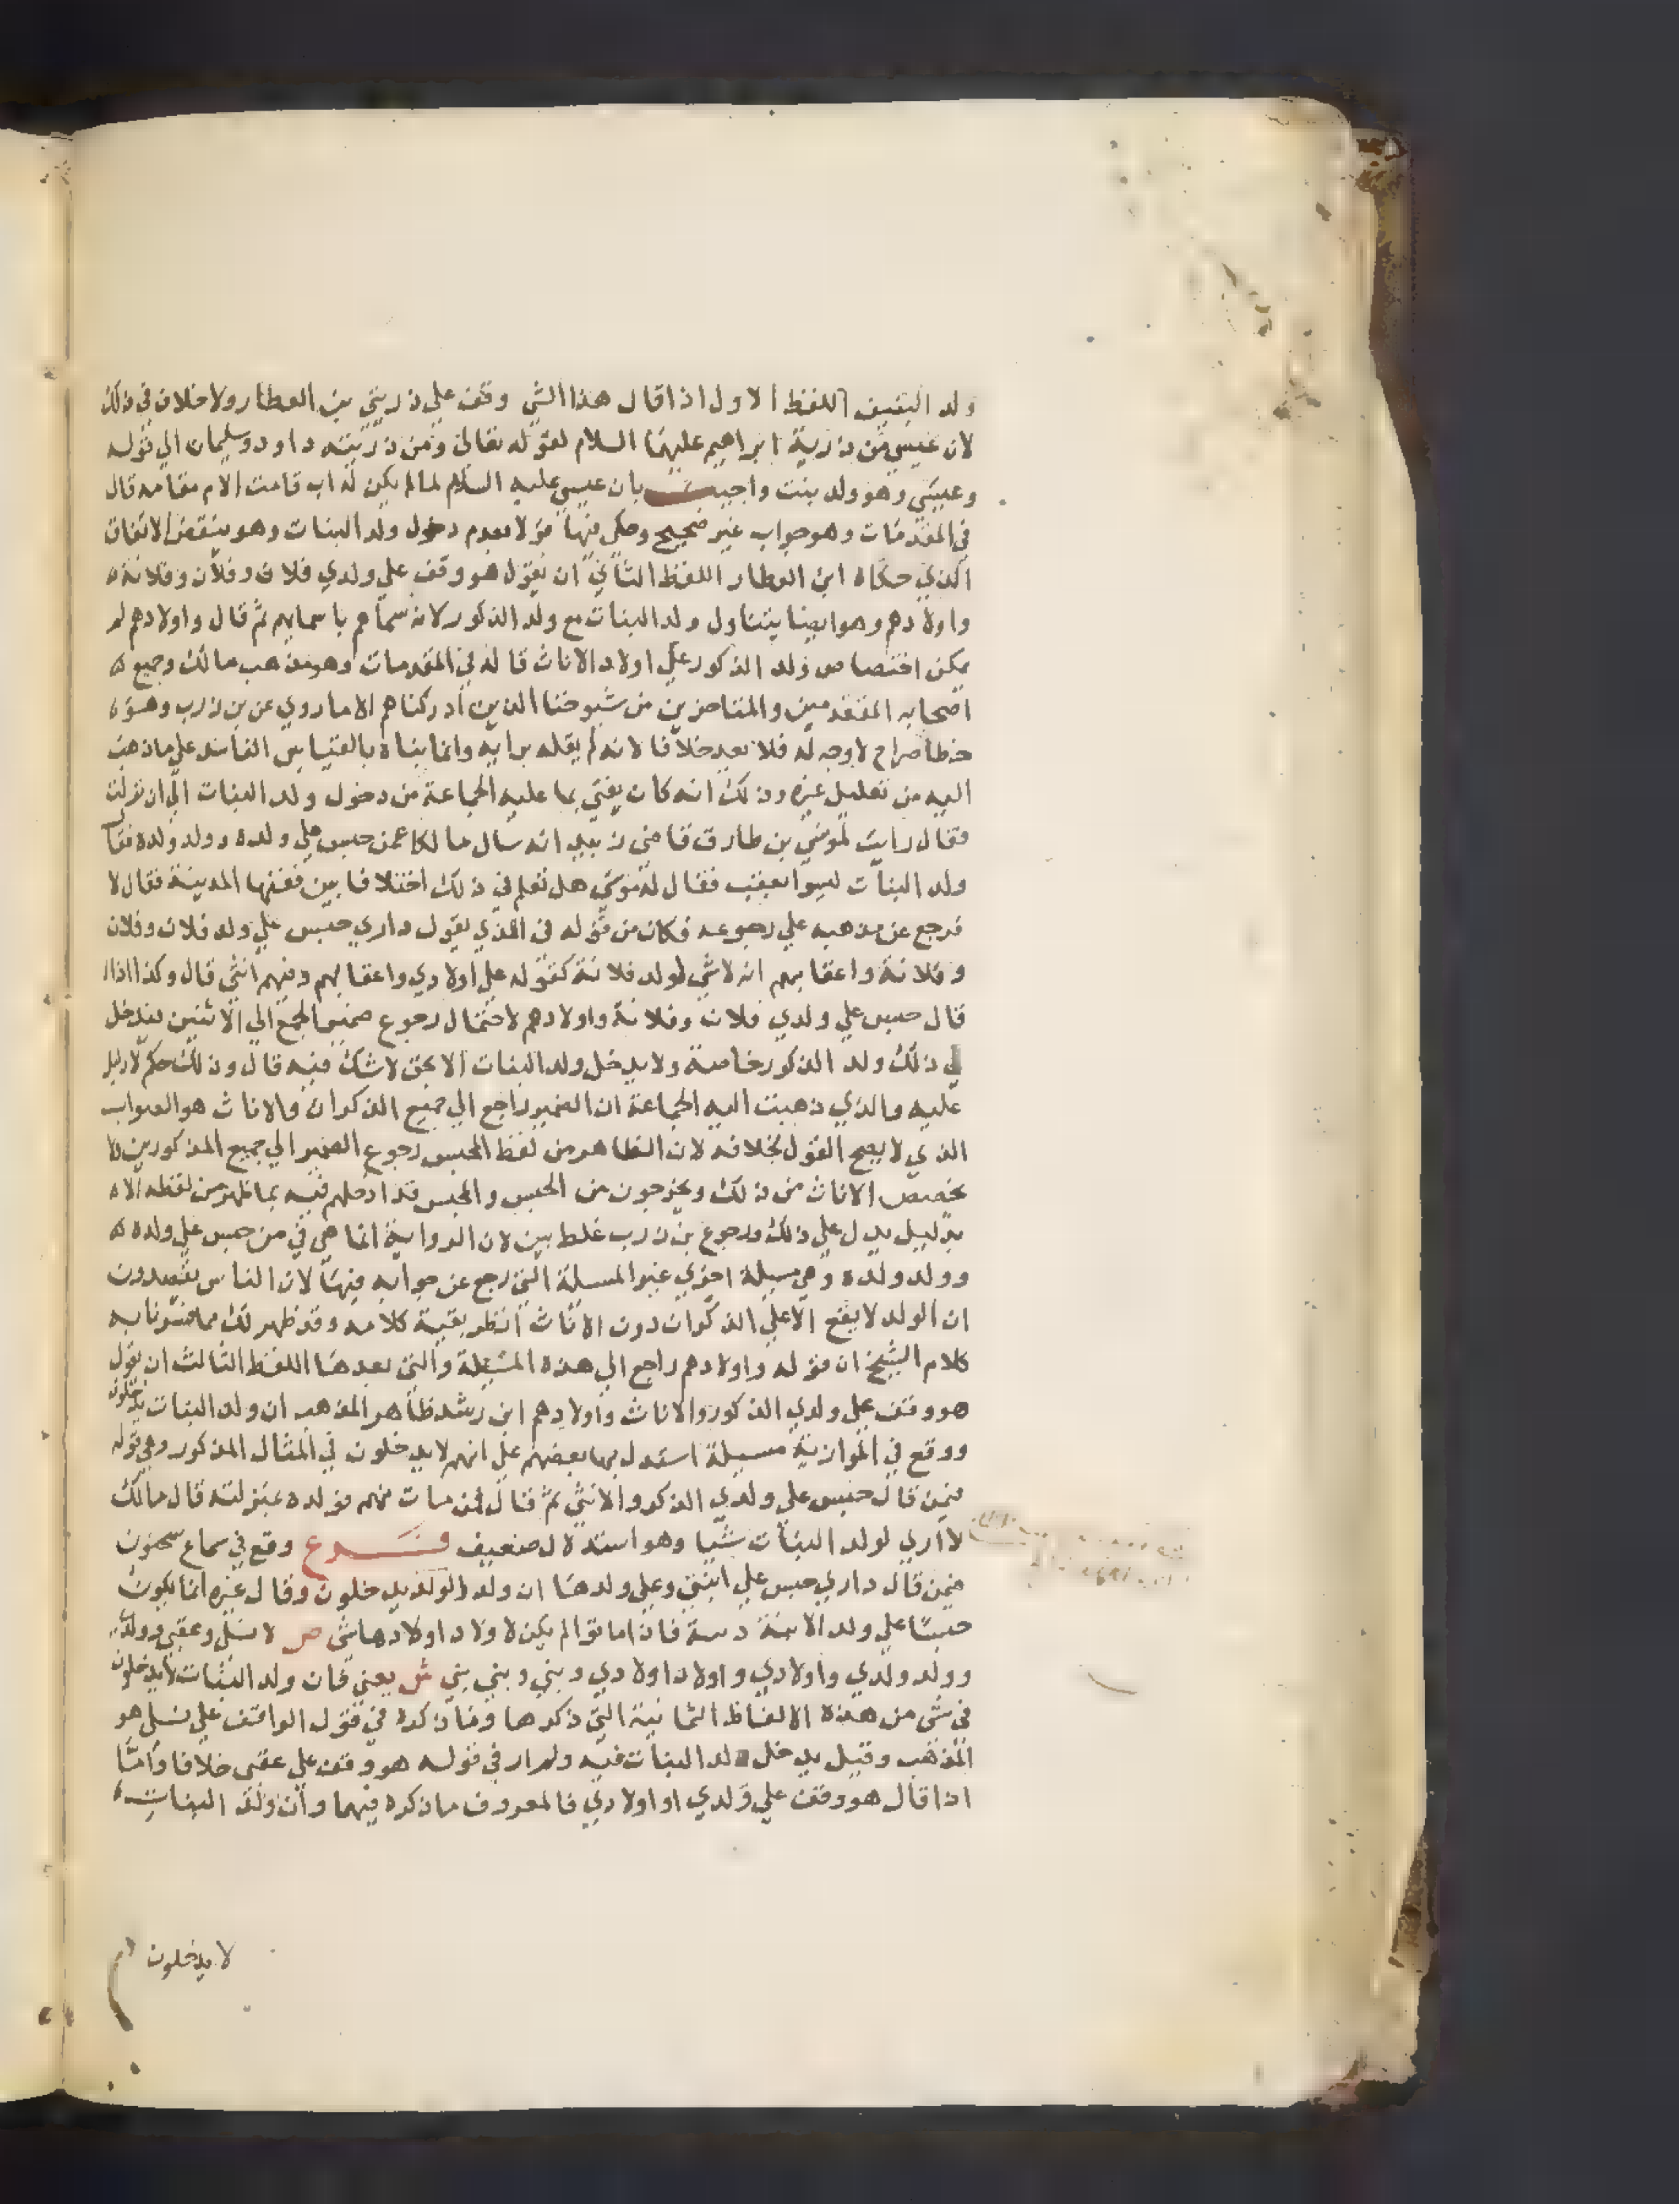 ولد البنين اللفظ الاول اذا قال هذا الشي وقف علي ذريتي بن العطار ولا خلاف في ذلك
لان عيسي من ذرية ابراهيم عليهما السلام لقوله تعالي ومن ذريته داود وسليمان الي قوله
وعيسي وهو ولد بنت واجيب بان عيسي عليه السلام لما لم يكن له اب قامت الام مقامه قال
في المقدمات وهو جواب غير صحيح وحكي فيها قولا بعدم دخول ولد البنات وهو ينقض الاتفاق
الذي حكاه ابن العطار اللفظ الثاني ان يقول هو وقف علي ولدي فلان وفلان وفلانة
واولادهم وهو ايضا يتناول ولد البنات مع ولد الذكور لانه سماهم باسمايهم ثم قال واولادهم لم
يمكن اختصاص ولد الذكور علي اولاد الاناث قاله في المقدمات وهو مذهب مالك وجميع
اصحابه المتقدمين والمتاخرين من شيوخنا الذين ادركناهم الا ما روي عن بن زرب وهو
خطا صراح لا وجه له فلا يعد خلافا لانه لم يقله برايه وانما بناه بالقياس الفاسد علي ما ذهب
اليه من تعليل غيره وذلك انه كان يفتي بما عليه الجماعة من دخول ولد البنات الي ان نزلت
فقال رايت لموسي بن طارق قاضي زبيد انه سال مالكا عمن حبس علي ولده وولد ولده فقال
ولد البنات ليسوا بعقب فقال له موسي هل تعلم في ذلك اختلافا بين فقها المدينة فقال لا
فرجع عن مذهبه علي رجوعه فكان من قوله في الذي يقول داري حبس علي ولد فلان وفلان
وفلانة واعقابهم انه لا شي لولد فلانة كقوله علي اولادي واعقابهم وفيهم انثي قال وكذا اذا
قال حبس علي ولدي فلان وفلانة واولادهم لاحتمال رجوع ضمير الجمع الي الاثنين فيدخل
في ذلك ولد الذكور خاصة ولا يدخل ولد البنات الا بحق لا شك فيه قال وذلك حكم لا دليل
عليه والذي ذهبت اليه الجماعة ان الضمير راجع الي جميع الذكران والاناث هو الصواب
الذي لا يصح القول بخلافه لان الظاهر من لفظ المحبس رجوع الضمير الي جميع المذكورين فلا
يخصص الاناث من ذلك ويخرجون من الحبس والمحبس قد ادخلهم فيه بما ظهر من لفظه الا
بدليل يدل علي ذلك ورجوع بن زرب غلط بين لان الرواية انما هي في من حبس علي ولده
وولد ولده وهي مسيلة اخري غير المسيلة التي رجع عن جوابه فيها لان الناس يقصدون
ان الولد لا يقع الا علي الذكران دون الاناث انظر بقية كلامه وقد ظهر لك مما فسرنا به
كلام الشيخ ان قوله واولادهم راجع الي هذه المسيلة والتي بعدها اللفظ الثالث ان يقول
هو وقف علي ولدي الذكور والاناث واولادهم ابن رشد ظاهر المذهب ان ولد البنات يدخلون
ووقع في الموازية مسيلة استدل بها بعضهم علي انهم لا يدخلون في المثال المذكور وهي قوله
فيمن قال حبس علي ولدي الذكر والانثي ثم قال فمن مات منهم فولده بمنزلته قال مالك
لا اري لولد البنات شيا وهو استدلال ضعيف فرع وقع في سماع سحنون
فيمن قال داري حبس علي ابنتي وعلي ولدها ان ولد الولد يدخلون وقال غيره انما يكون
حبسا علي ولد الابنة دنية فاذا ماتوا لم يكن لاولاد اولادها شي ص لا نسلي وعقبي وولدي
وولد ولدي واولادي واولاد اولادي وبني وبني بني ش يعني فان ولد البنات لا يدخلون
في شي من هذه الالفاظ الثمانية التي ذكرها وما ذكره في قول الواقف علي نسلي هو
المذهب وقيل يدخل ولد البنات فيه ولم ار في قوله هو وقف علي عقبي خلافا واما
اذا قال هو وقف علي ولدي او اولادي فالمعروف ما ذكره فيهما وان ولد البنات
لا يدخلون